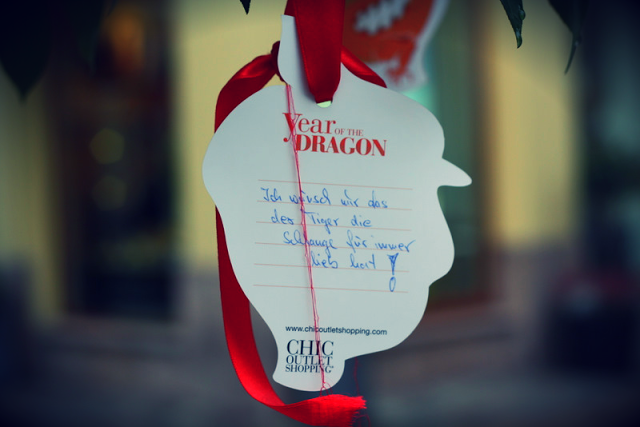 Year OF THE
DRAGON
Ich wünsch mir das
der Tiger die
Schlange für immer
lieb hat!
www.chicoutletshopping.com
CHIC
OUTLET
SHOPPING®